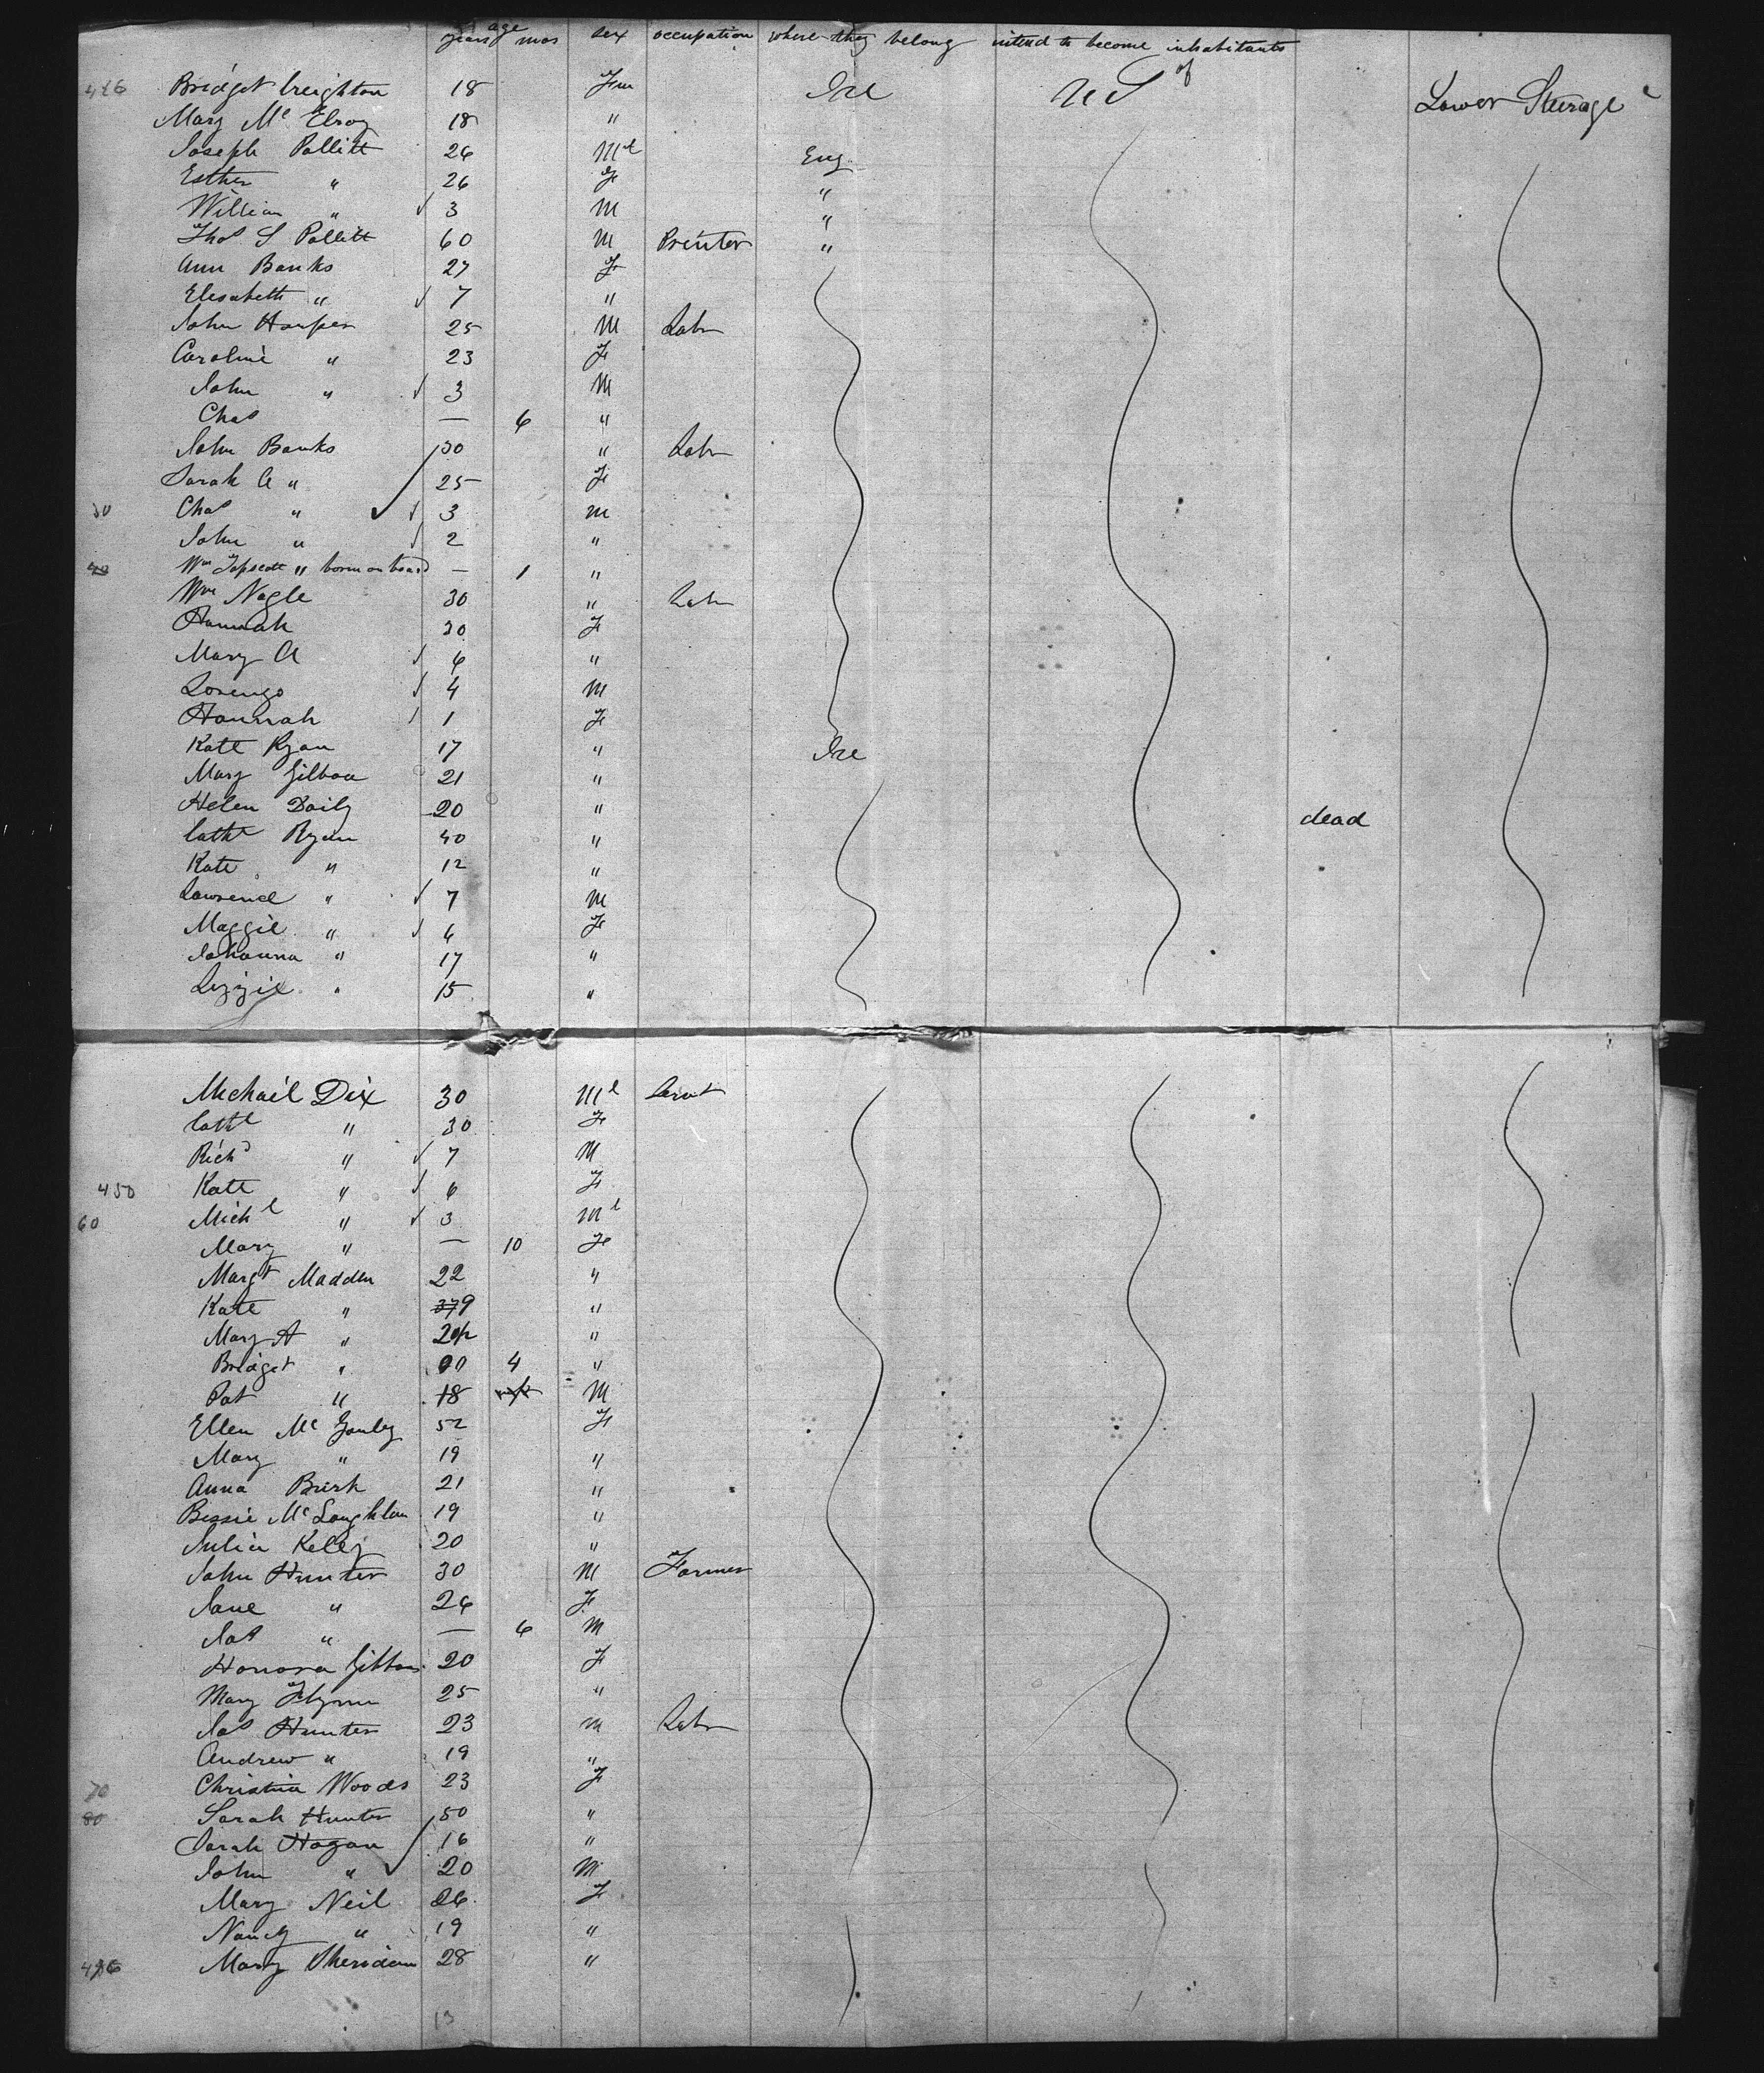 age
years mos sex occupation where they belong intend to become inhabitants of
426 Bridget Creighton 18 Fem Ire U S Lower Steerage
Mary Mc Elroy 18 "
Joseph Pollitt 26 Ml Eng
Esther " 26 F "
William " 3 M "
Thos S Pollitt 60 M Printer "
Ann Banks 27 F
Elisabeth " 7 "
John Harper 25 M Labr
Caroline " 23 F
John " 3 M
Chas — 6 "
John Banks 30 " Labr
Sarah A " 25 F
30 Chas " 3 m
John " 2 "
40 Wm Tapscott " born on board — 1 "
Wm Nagle 30 " Labr
Hannah 30 F
Mary A 6 "
Lorenzo 4 M
Hannah 1 F
Kate Ryan 17 " Ire
Mary Gilboa 21 "
Helen Daily 20 " dead
Cathe Ryan 40 "
Kate " 12 "
Lawrence " 7 M
Maggie " 6 F
Johanna " 17 "
Lizzie " 15 "
Michail Dix 30 Ml Servt
Cathe " 30 F
Richd " 7 M
450 Kate " 6 F
60 Michl " 3 Ml
Mary " — 10 F
Margt Madden 22 "
Kate " 9 "
Mary A " "
Bridget " 4 "
Pat " 18 M
Ellen Mc 52 F
Mary " 19 "
Anna Burk 21 "
Bessie Mc Loughlin 19 "
Julia Kelly 20 "
John Hunter 30 M Farmer
Jane " 26 F
Jas " — 6 M
Honora Gibbons 20 F
Mary Flynn 25 "
Jas Hunter 23 m Labr
Andrew " 19 "
70 Christina Woods 23 F
80 Sarah Hunter 50 "
Sarah Hogan 16 "
John " 20 M
Mary Neil 26 F
Nancy " 19 "
Mary Sheridan 28 "
13